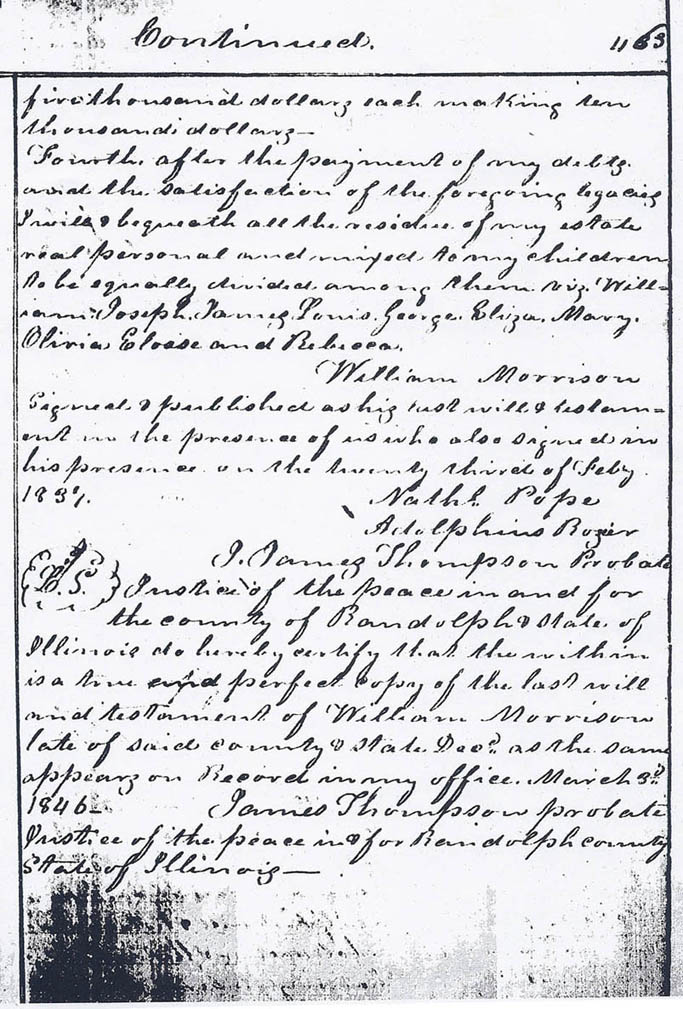 Continued. 463
five thousand dollars each making ten
thousand dollars—
Fourth. after the payment of my debts
and the satisfaction of the foregoing legacies
I will & bequeath all the residue of my estate
real personal and mixed to my children
to be equally divided among them viz. Will=
iam. Joseph. James. Louis. George. Eliza. Mary.
Olivia Eloise and Rebecca.
William Morrison
Signed & published as his last will & testam=
ent in the presence of us who also signed in
his presence on the twenty third of Feby
1837. Nathl. Pope
Adolphius Rozier
I. James Thompson Probate
{L.S.} Justice of the peace in and for
the county of Randolph & state of
Illinois do hereby certify that the within
is a true and perfect copy of the last will
and testament of William Morrison
late of said county & state Decd. as the same
appears on Record in my office. March 3d.
1846— James Thompson probate
Justice of the peace in & for Randolph county
State of Illinois—